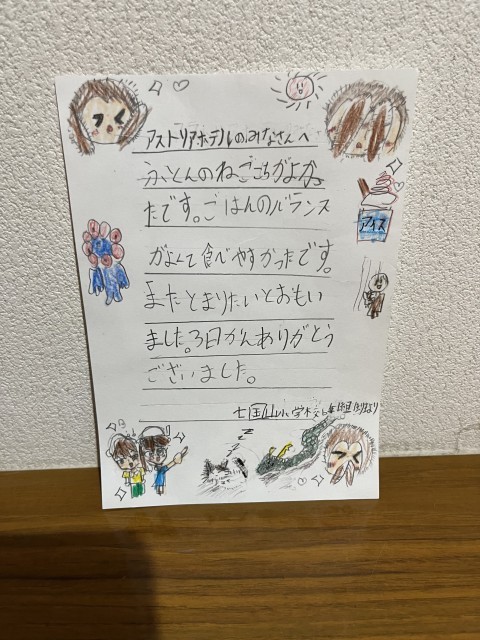 アストリアホテルのみなさんへ
ふとんのねごこちがよかっ
たです。ごはんのバランス
がよくて食べやすかったです。
またとまりたいとおもい
ました。3日かんありがとう
ございました。
七国山小学校6年
アイス
zzz